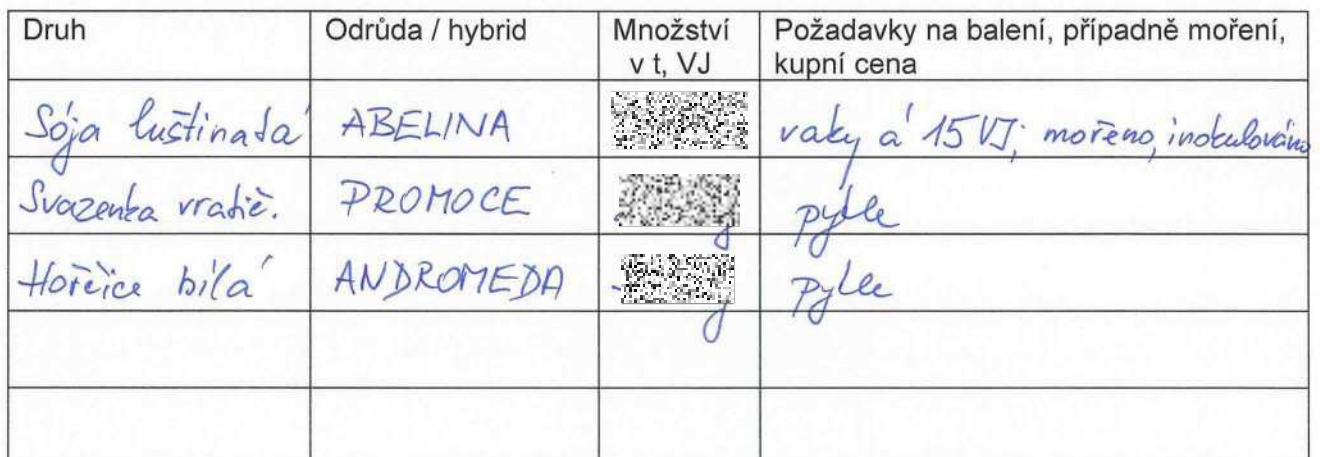 Druh Odrůda / hybrid Množství v t, VJ Požadavky na balení, případně moření, kupní cena
Sója luštinatá ABELINA vaky á 15 VJ; mořeno, inokulováno
Svazenka vratič. PROMOCE pytle
Hořčice bílá ANDROMEDA pytle